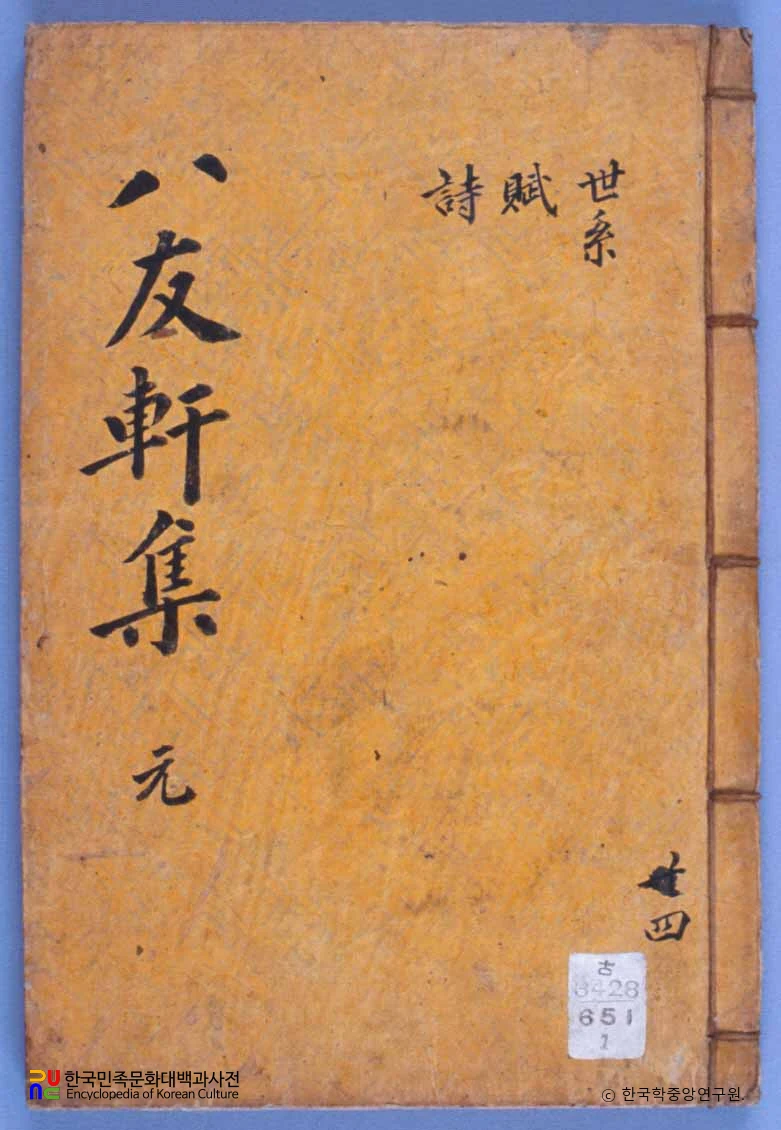 世系
賦
詩
八友軒集 元
廿四
古
3428
651
1
한국민족문화대백과사전
Encyclopedia of Korean Culture
ⓒ 한국학중앙연구원.